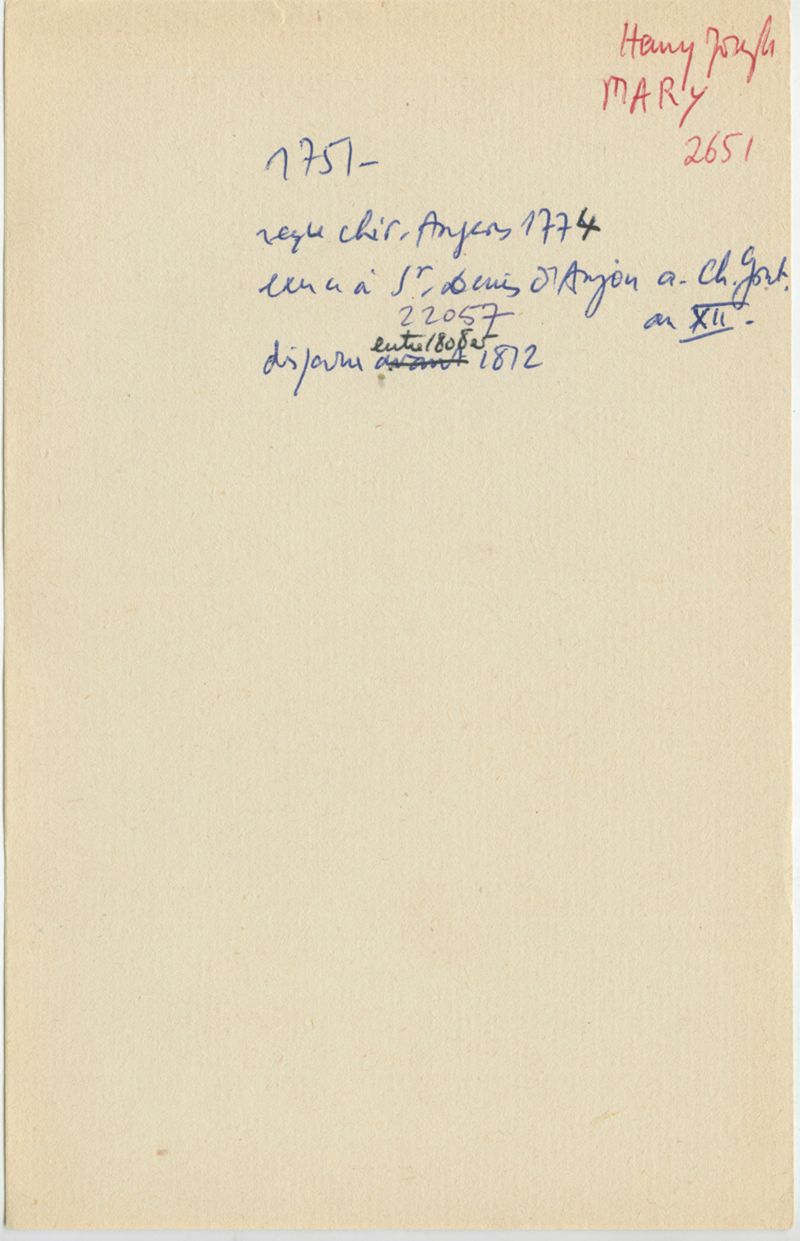 Henry Joseph
MARY
2651
1751-
reçu chir. Angers 1774
exerce à St. Denis d'Anjou a. Ch. Gont.
22057
an XII -
entre 1808 et
disparu avant 1812